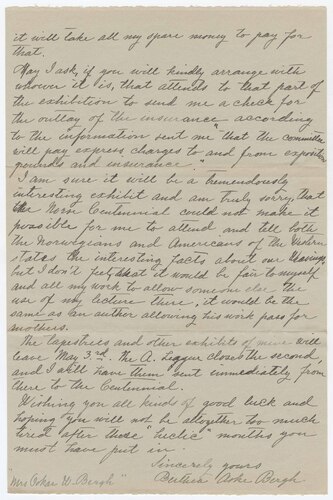 it will take all my spare money to pay for
that.
May I ask, if you will kindly arrange with
whom it is, that attends to that part of
the exhibition to send me a check for
the outlay of the insurance according
to the information sent me "that the committee
will pay express charges to and from exposition
grounds and insurance."
I am sure it will be a tremendously
interesting exhibit and am truly sorry, that
the Norse Centennial could not make it
possible for me to attend and tell both
the Norwegians and Americans of the
states the interesting facts about our
but I don't feel, that it would be fair to myself
and all my work to allow someone else the
use of my lecture there, it would be the
same as an author allowing his work pass for
mothers.
The tapestries and other exhibits of mine will
leave May 3rd. The A. closes the second,
and I will have them sent immediately from
there to the Centennial.
Wishing you all kinds of good luck and
hoping you will not be altogether too much
tired after these "hectic" months you
must have put in.
Sincerely yours
Berthea Aske Bergh.
"Mrs Oskar W. Bergh"